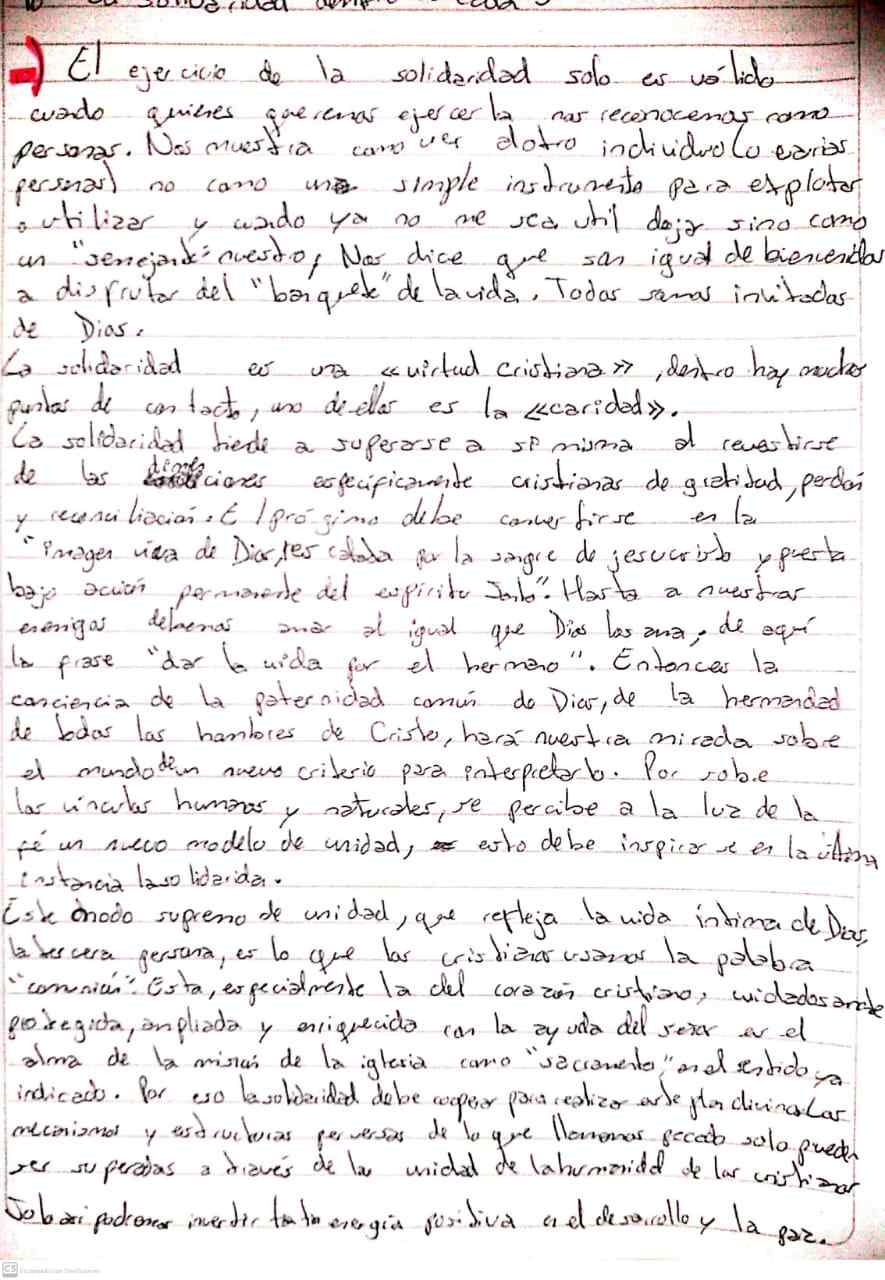 la solidaridad
El ejercicio de la solidaridad solo es válido
cuando quienes queremos ejercerla nos reconocemos como
personas. Nos muestra como ver al otro individuo (o varias
personas) no como una simple instrumento para explotar
o utilizar y cuando ya no me sea util dejar sino como
un "semejante" nuestro, Nos dice que son igual de bienvenidos
a disfrutar del "banquete" de la vida. Todos somos invitados
de Dios.
La solidaridad es una «virtud cristiana», dentro hay muchos
puntos de contacto, uno de ellos es la «caridad».
La solidaridad tiende a superarse a sí misma al revestirse
de las dimensiones específicamente cristianas de gratitud, perdón
y reconciliación. El prógimo debe convertirse en la
"imagen viva de Dios, rescatada por la sangre de jesucristo y puesta
bajo acción permanente del espíritu Santo". Hasta a nuestros
enemigos debemos amar al igual que Dios los ama, de aquí
la frase "dar la vida por el hermano". Entonces la
conciencia de la paternidad común de Dios, de la hermandad
de todos los hombres de Cristo, hará nuestra mirada sobre
el mundo de un nuevo criterio para interpretarlo. Por sobre
los vínculos humanos y naturales, se percibe a la luz de la
fé un nuevo modelo de unidad, esto debe inspirarse en la última
instancia la solidarida.
Este modo supremo de unidad, que refleja la vida íntima de Dios,
la tercera persona, es lo que los cristianos usamos la palabra
"comunión". Esta, especialmente la del corazón cristiano, cuidadosamente
protegida, ampliada y enriquecida con la ayuda del señor es el
alma de la misión de la iglesia como "sacramento", en el sentido ya
indicado. Por eso la solidaridad debe cooperar para realizar este plan divino. Los
mecanismos y estructuras perversas de lo que llamamos pecado solo pueden
ser superadas a través de la unidad de la humanidd de los cristianos
Solo asi podremos invertir tanta energía positiva en el desarrollo y la paz.
CS